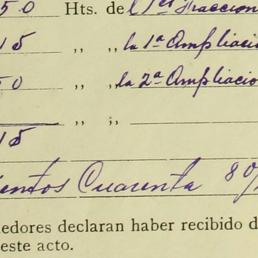 50 Hts. de l 1er Fraccion
15 ,, ,, la 1a Ampliacio
50 ,, ,, la 2a Ampliacio
,, ,;
15
ientos Cuarenta 80/
edores declaran haber recibido d
este acto.